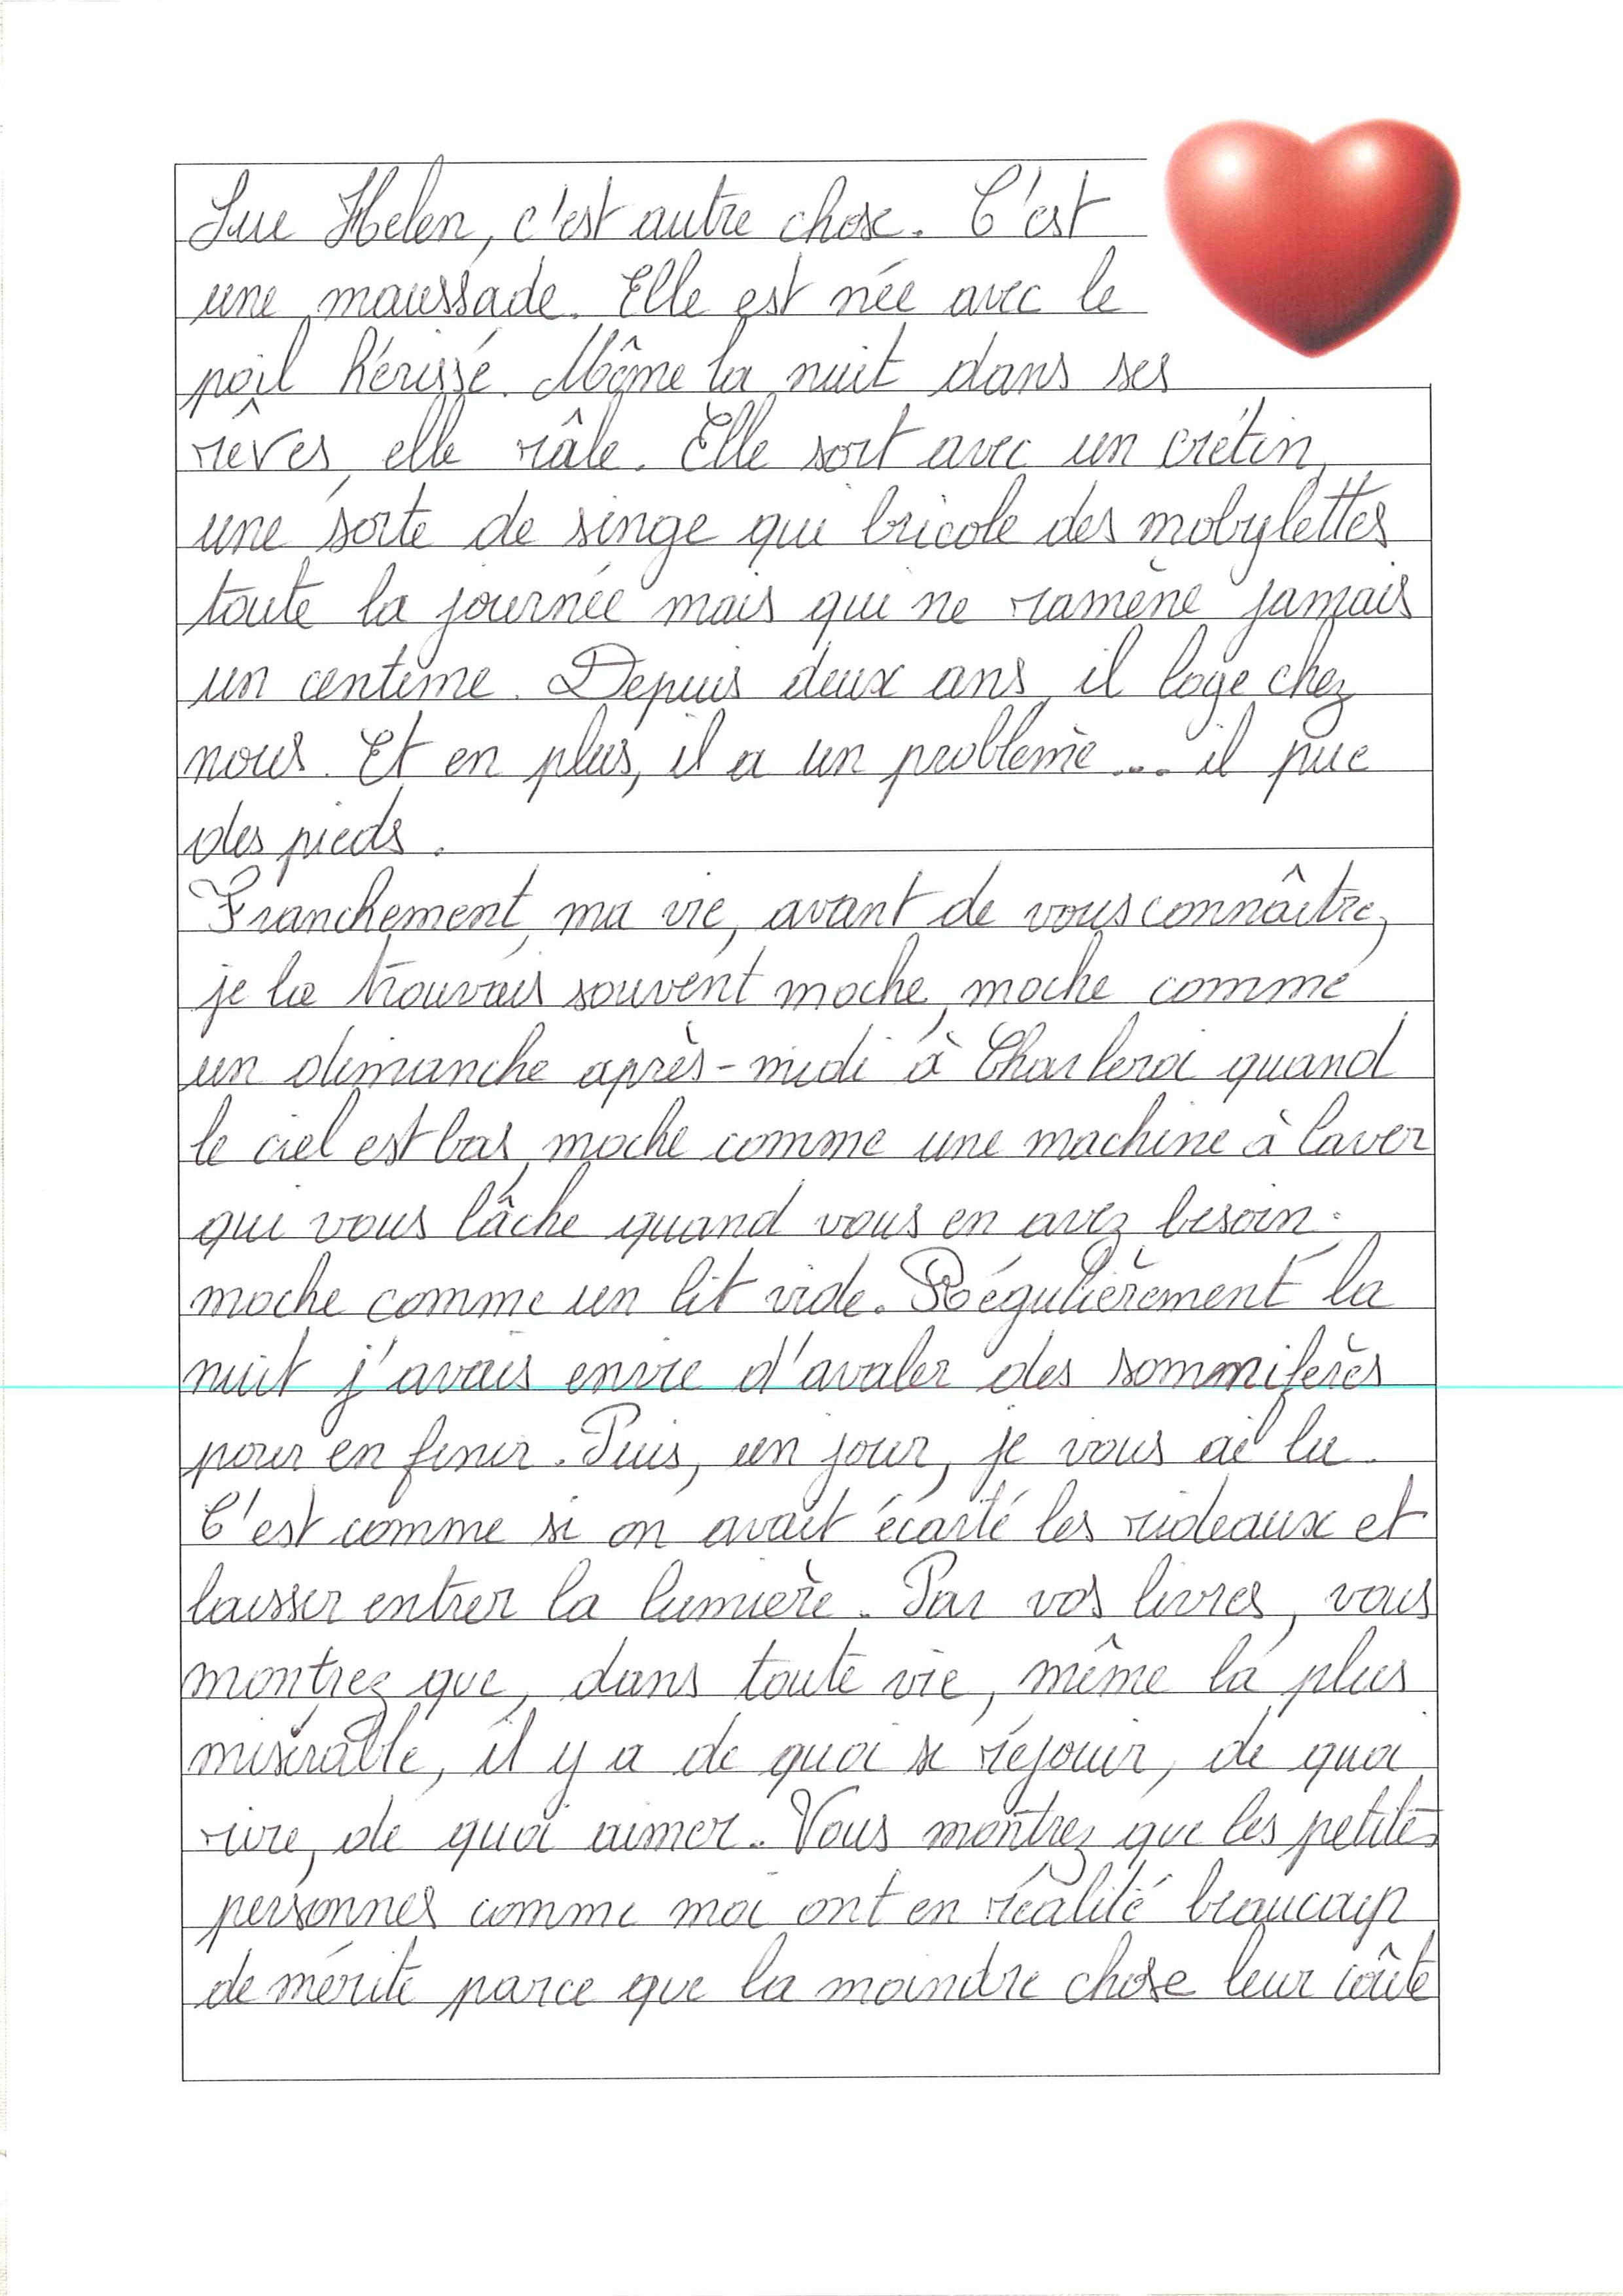 Sue Helen, c'est autre chose. C'est
une maussade. Elle est née avec le
poil hérissé. Même la nuit dans ses
rêves, elle râle. Elle sort avec un crétin,
une sorte de singe qui bricole des mobylettes
toute la journée mais qui ne ramène jamais
un centime. Depuis deux ans, il loge chez
nous. Et en plus, il a un problème... il pue
des pieds.
Franchement, ma vie, avant de vous connaître,
je la trouvais souvent moche, moche comme
un dimanche après-midi à Charleroi quand
le ciel est bas, moche comme une machine à laver
qui vous lâche quand vous en avez besoin.
moche comme un lit vide. Régulièrement la
nuit j'avais envie d'avaler des somnifères
pour en finir. Puis, un jour, je vous ai lu.
C'est comme si on avait écarté les rideaux et
laisser entrer la lumière. Par vos livres, vous
montrez que, dans toute vie, même la plus
misérable, il y a de quoi se réjouir, de quoi
rire, de quoi aimer. Vous montrez que les petites
personnes comme moi ont en réalité beaucoup
de mérite parce que la moindre chose leur coûte